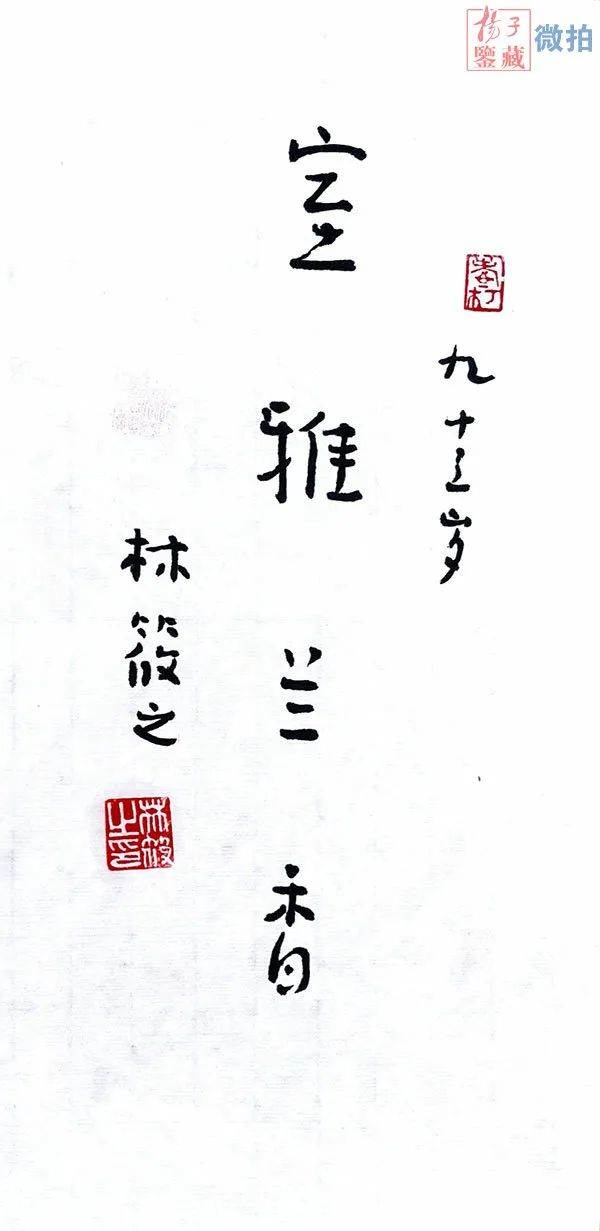 楊子
鑒藏
微拍
九十三岁
室雅兰香
林筱之
林筱之印